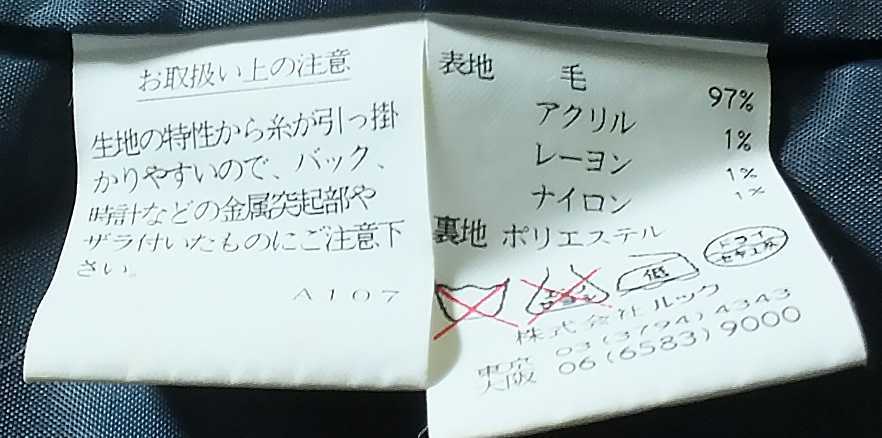 お取扱い上の注意
生地の特性から糸が引っ掛
かりやすいので、バック、
時計などの金属突起部や
ザラ付いたものにご注意下
さい。
A107
表地 毛 97%
アクリル 1%
レーヨン 1%
ナイロン 1%
裏地 ポリエステル
エンソ
サラシ
低
ドライ
セキユ系
株式会社ルック
東京 03(3794)4343
大阪 06(6583)9000